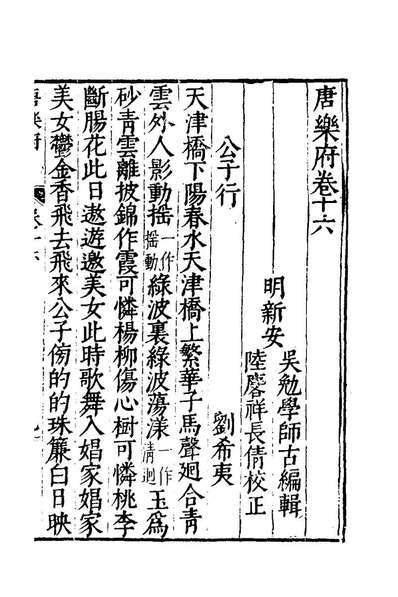 唐樂府卷十六
明新安
吳勉學師古編輯
陸麐祥長倩校正
公子行
劉希夷
天津橋下陽春水天津橋上繁華子馬聲廻合青
雲外人影動搖一作搖動綠波裏綠波蕩漾一作清迥玉為
砂青雲離披錦作霞可憐楊柳傷心樹可憐桃李
斷腸花此日遨遊邀美女此時歌舞入娼家娼家
美女鬱金香飛去飛來公子傍的的珠簾白日映
唐樂府 卷十六